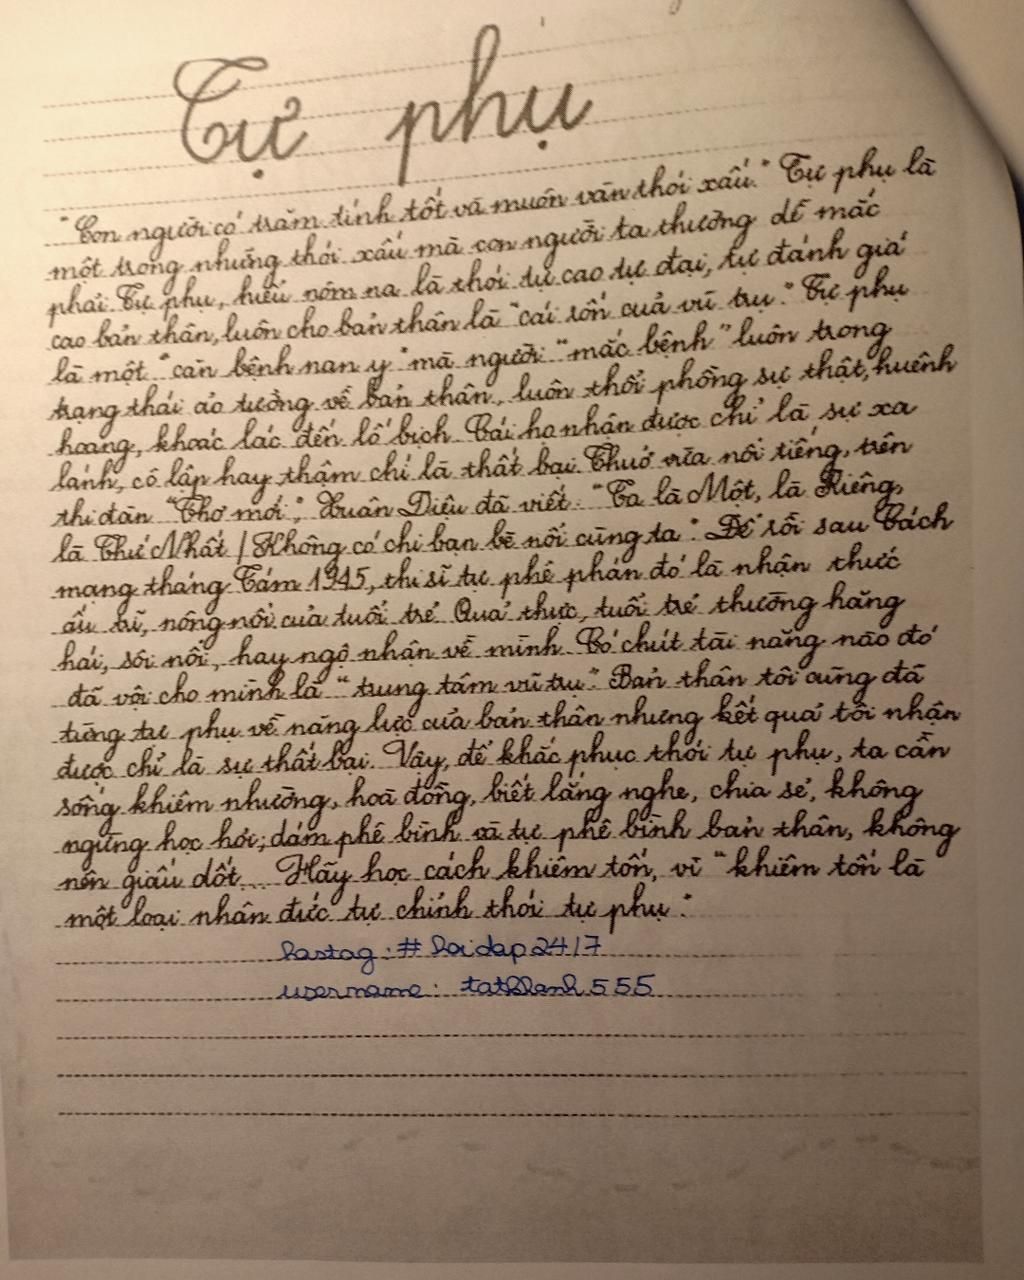 Tự phụ
"Con người có trăm tính tốt và muôn vàn thói xấu." Tự phụ là
một trong những thói xấu mà con người ta thường dễ mắc
phải. Tự phụ, hiểu nôm na là thói tự cao tự đại, tự đánh giá
cao bản thân, luôn cho bản thân là "cái rốn của vũ trụ." Tự phụ
là một "căn bệnh nan y" mà người "mắc bệnh" luôn trong
trạng thái ảo tưởng về bản thân, luôn thổi phồng sự thật, huênh
hoang, khoác lác đến lố bịch. Cái họ nhận được chỉ là sự xa
lánh, cô lập hay thậm chí là thất bại. Thuở vừa nổi tiếng, trên
thi đàn "Thơ mới", Xuân Diệu đã viết: "Ta là Một, là Riêng,
là Thứ Nhất / Không có chi bạn bè nổi cùng ta". Để rồi sau Cách
mạng tháng Tám 1945, thi sĩ tự phê phán đó là nhận thức
ấu trĩ, nông nổi của tuổi trẻ. Quả thực, tuổi trẻ thường hăng
hái, sôi nổi, hay ngộ nhận về mình. Có chút tài năng nào đó
đã vội cho mình là "trung tâm vũ trụ". Bản thân tôi cũng đã
từng tự phụ về năng lực của bản thân nhưng kết quả tôi nhận
được chỉ là sự thất bại. Vậy, để khắc phục thói tự phụ, ta cần
sống khiêm nhường, hoà đồng, biết lắng nghe, chia sẻ, không
ngừng học hỏi; dám phê bình và tự phê bình bản thân, không
nên giấu dốt... Hãy học cách khiêm tốn, vì "khiêm tốn là
một loại nhân đức tự chính thói tự phụ".
hastag: # hoidap247
username: tatthanh555